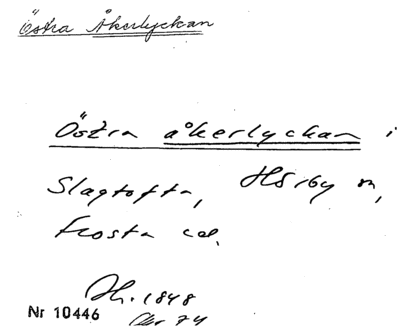 Östra Åkerlyckan
Östra åkerlyckan i
Slagtofta, Hörby sn,
Frosta hd.
Sh. 1848
Nr 10446
Akt 74